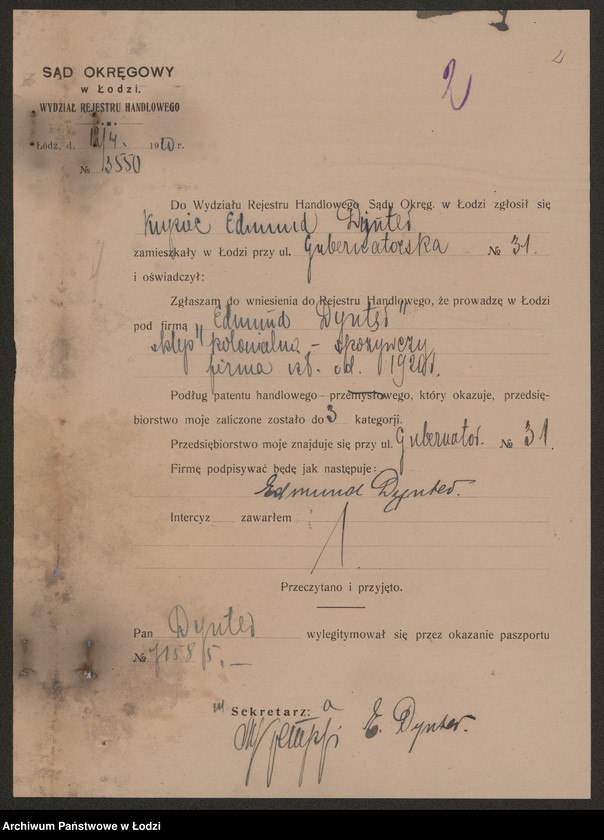 2
SĄD OKRĘGOWY
w Łodzi,
WYDZIAŁ REJESTRU HANDLOWEGO
Łódź, d. 12/4. 1920 r.
№ 3550
Do Wydziału Rejestru Handlowego Sądu Okręg. w Łodzi zgłosił się
Kupiec Edmund Dynter
zamieszkały w Łodzi przy ul. Gubernatorska № 31.
i oświadczył:
Zgłaszam do wniesienia do Rejestru Handlowego, że prowadzę w Łodzi
pod firmą „Edmund Dynter"
sklep kolonialno – spożywczy
firma istn. od. 1920 r.
Podług patentu handlowego—przemysłowego, który okazuje, przedsię-
biorstwo moje zaliczone zostało do 3 kategorji.
Przedsiębiorstwo moje znajduje się przy ul. Gubernator. № 31.
Firmę podpisywać będę jak następuje:
Edmund Dynter.
Intercyz zawarłem
Przeczytano i przyjęto.
Pan Dynter wylegitymował się przez okazanie paszportu
№ 7158/5. —
Sekretarz:
E. Dynter.
Archiwum Państwowe w Łodzi